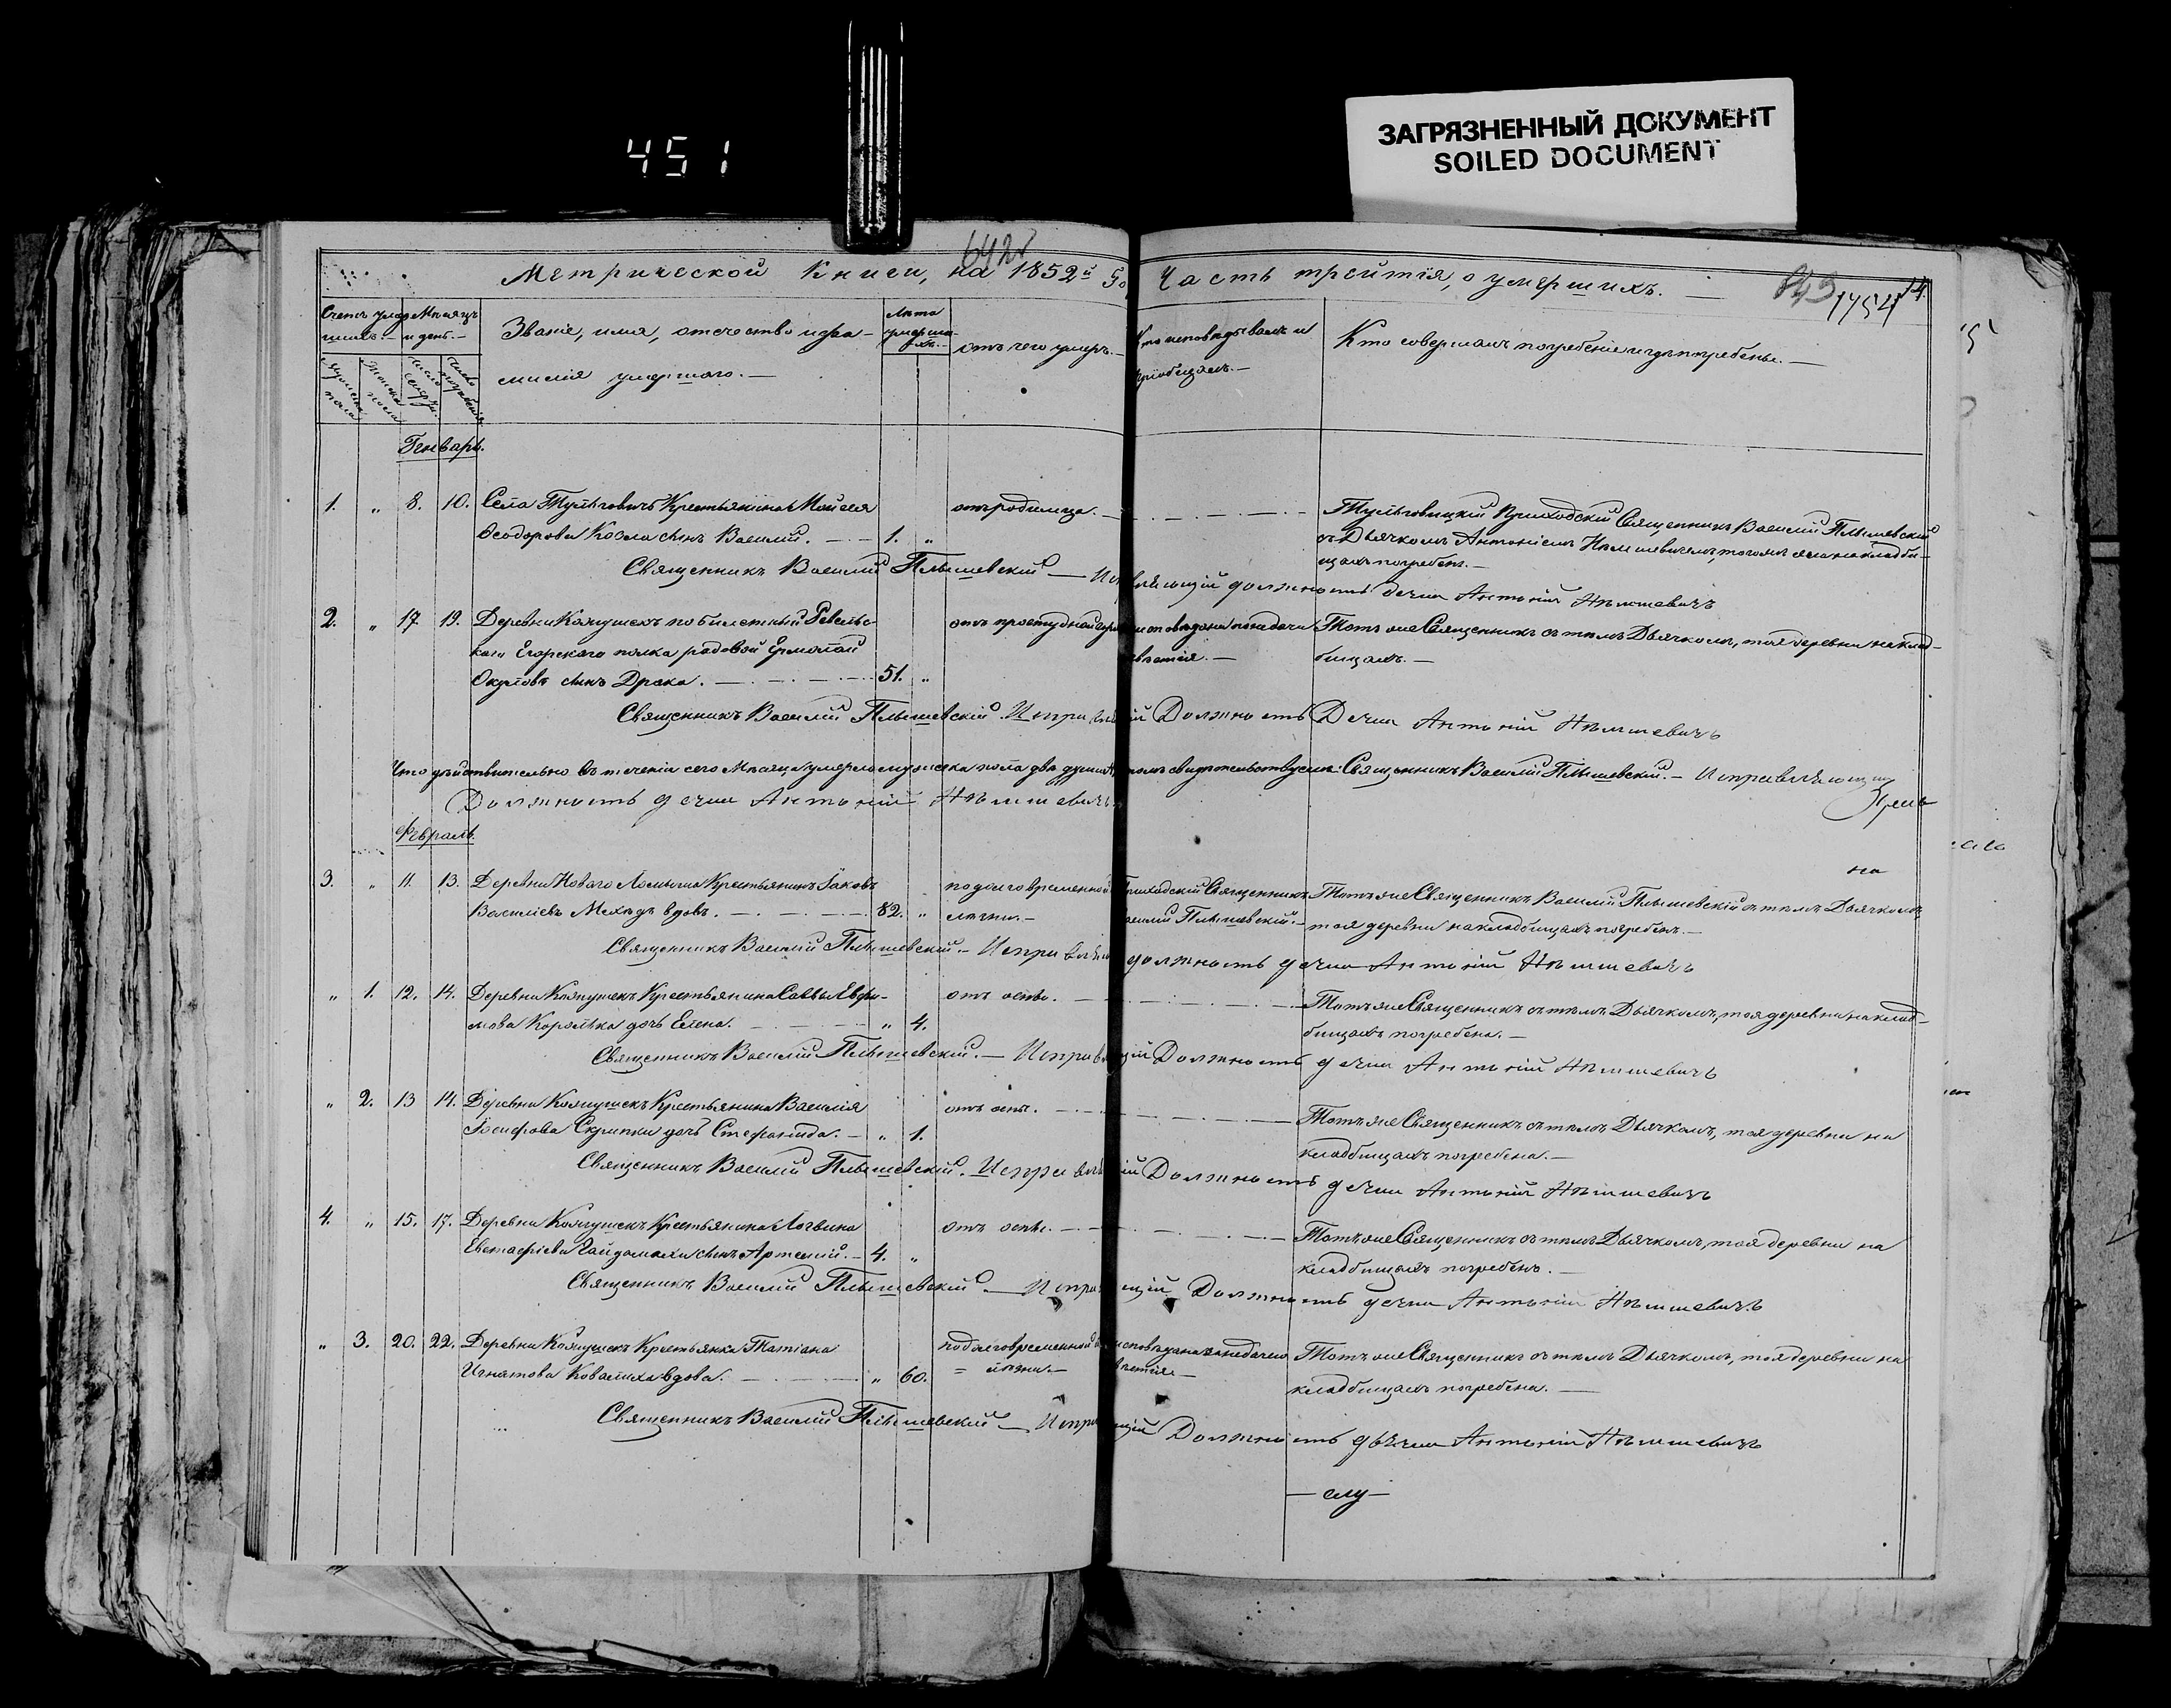 451
ЗАГРЯЗНЕННЫЙ ДОКУМЕНТ
SOILED DOCUMENT
642
Метрической книги, на 1852й Го
Часть третія, о умершихъ. —
843 1754 14.
Счетъ умер- Мѣсяцъ
шихъ. — и день. —
Званіе, имя, отечество и фа-
милія умершаго. —
Лѣта
умерша-
го.
отъ чего умеръ. —
Кто исповѣдывалъ и
пріобщалъ. —
Кто совершалъ погребеніе и гдѣ погребены. —
мужеска
пола
женска
пола
число
смерти.
число
погребенія
Генварь.
1. „ 8. 10. Села Тулѣговичъ Крестьянина Моисея
Ѳеодорова Козла сынъ Василій. — 1. „
отъ родимца. —
Тулѣговицкій Приходскій Священникъ Василій Плышевскій
съ Дьячкомъ Антоніемъ Нѣмшевичемъ, того жъ села на кладби-
щахъ погребенъ. —
Священникъ Василій Плышевскій — Исправляющій должность дьячка Антоній Нѣмшевичъ
2. „ 17 19. Деревни Кожушекъ по билетный Ревельс-
каго Егерского полка рядовой Ермолай
Окуловъ сынъ Драка. — 51. „
Тотъ же Священникъ съ тѣмъ Дьячкомъ, тоя деревни на клад-
бищахъ. —
Священникъ Василій Плышевскій. Исправляющій Должность Дьячка Антоній Нѣмшевичъ
Что дѣйствительно въ теченіи сего Мѣсяца умерло мужеска пола двѣ души въ томъ свидѣтельствуемъ: Священникъ Василій Плышевскій. — Исправляющій
Должность дьячка Антоній Нѣмшевичъ
Февраль.
на
3. „ 11. 13. Деревни Новаго Ломыша Крестьянинъ Іаковъ
Василіевъ Мехедъ вдовъ. — 82. „
по долговременной
Приходскій Священникъ
Василій Плышевскій. —
Тотъ же Священникъ Василій Плышевскій съ тѣмъ Дьячкомъ
тоя деревни на кладбищахъ погребенъ. —
Священникъ Василій Плышевскій. — Исправляющій должность дьячка Антоній Нѣмшевичъ
„ 1. 12. 14. Деревни Кожушекъ Крестьянина Саввы Евфи-
мова Королька дочь Елена. — „ 4.
отъ оспы. —
Тотъ же Священникъ съ тѣмъ Дьячкомъ, тоя деревни на клад-
бищахъ погребена. —
Священникъ Василій Плышевскій. — Исправляющій Должность дьячка Антоній Нѣмшевичъ
„ 2. 13 14. Деревни Кожушекъ Крестьянина Василія
Іосифова Скрипки дочь Стефанида. — „ 1.
отъ оспы. —
Тотъ же Священникъ съ тѣмъ Дьячкомъ, тоя деревни на
кладбищахъ погребена. —
Священникъ Василій Плышевскій. Исправляющій Должность дьячка Антоній Нѣмшевичъ
4. „ 15. 17. Деревни Кожушекъ Крестьянина Логвина
Евстафіева Гайдамахи сынъ Артемій. — 4. „
отъ оспы. —
Тотъ же Священникъ съ тѣмъ Дьячкомъ, тоя деревни на
кладбищахъ погребенъ. —
Священникъ Василій Плышевскій. — Исправляющій Должность дьячка Антоній Нѣмшевичъ
„ 3. 20. 22. Деревни Кожушекъ Крестьянка Татіана
Игнатова Ковалиха вдова. — „ 60.
по долговременной
Тотъ же Священникъ съ тѣмъ Дьячкомъ, тоя деревни на
кладбищахъ погребена. —
Священникъ Василій Плышевскій — Исправляющій Должность дьячка Антоній Нѣмшевичъ
— слу —